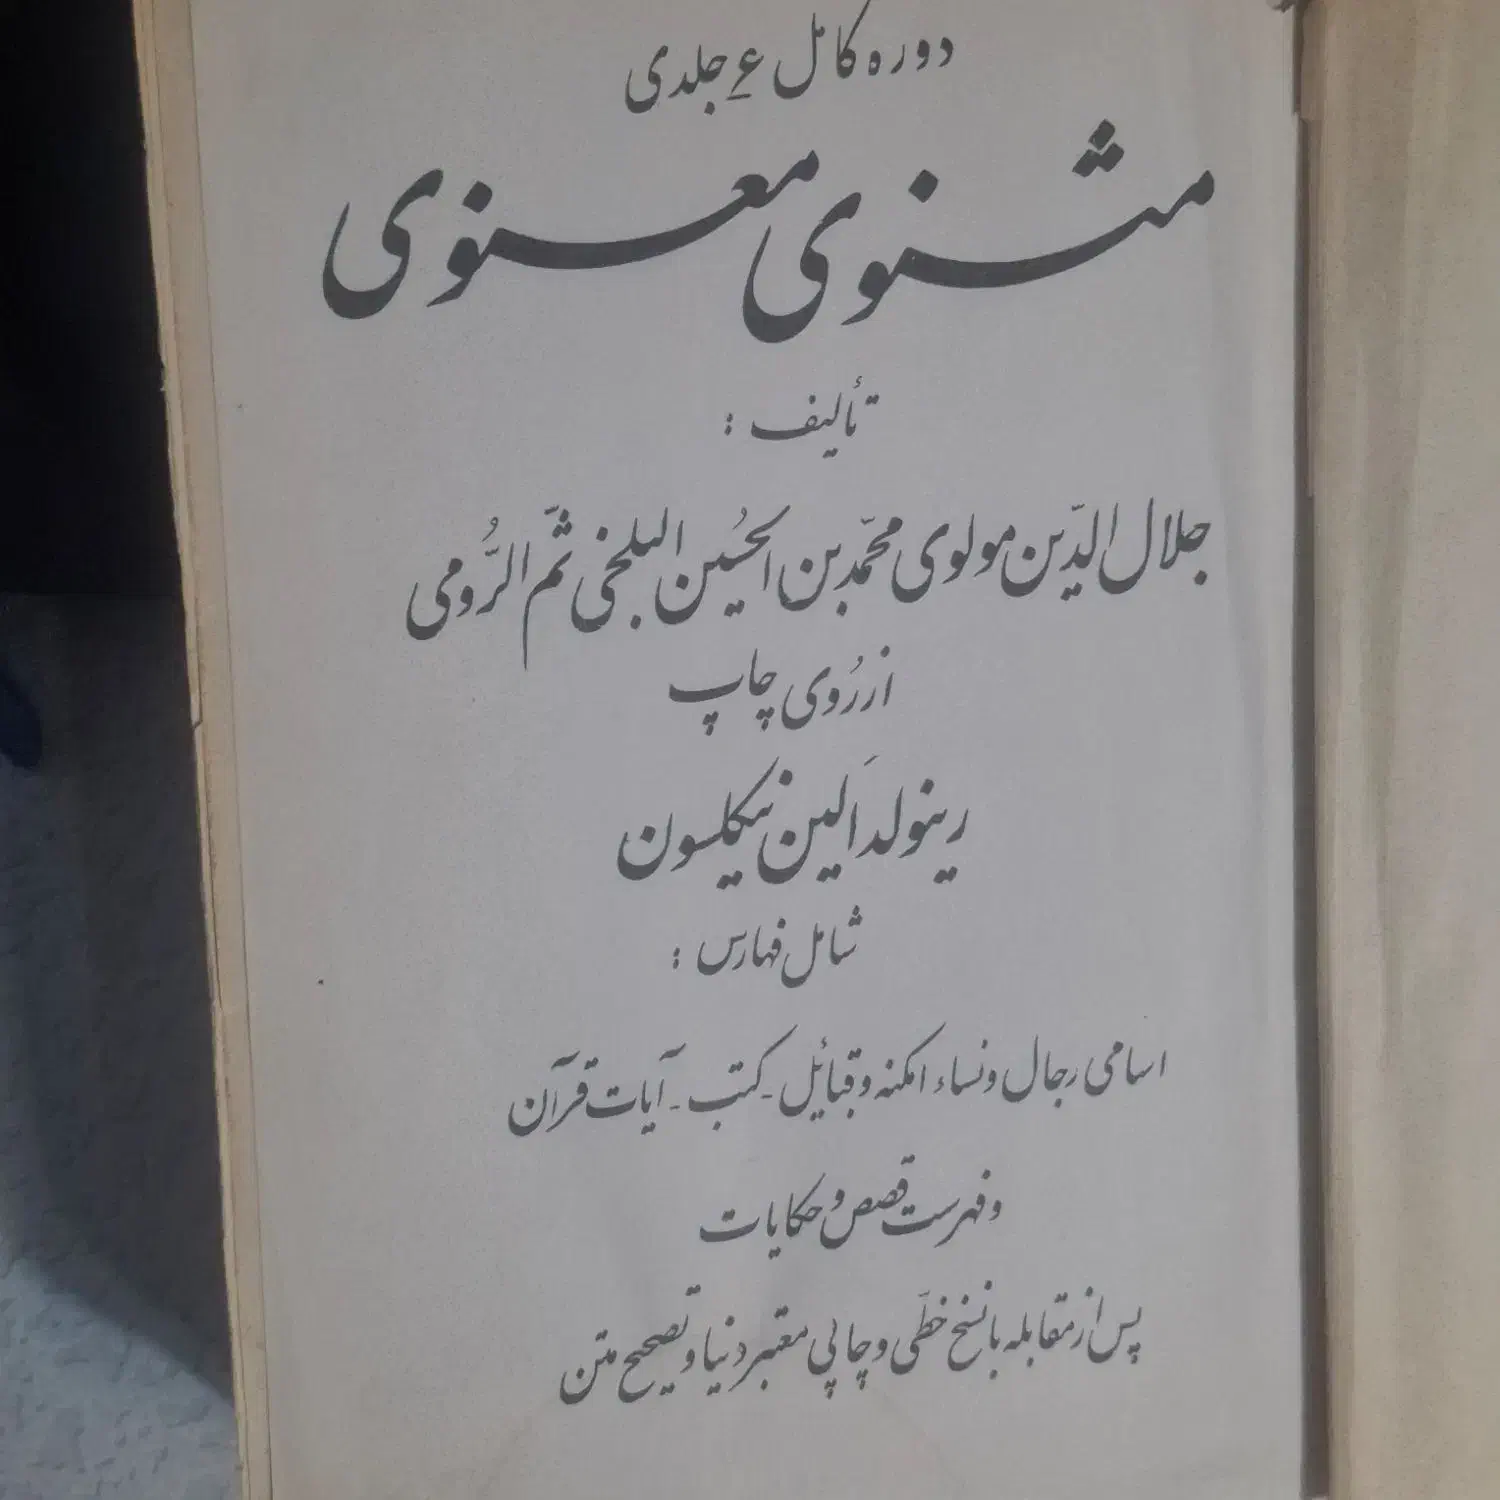 دوره کامل ۶ جلدی
مثنوی معنوی
تألیف :
جلال الدّین مولوی محمّد بن الحُسین البلخی ثمّ الرُّومی
از رُوی چاپ
رینولد اَلین نیکلسون
شامل فهارس :
اسامی رجال و نساء امکنه و قبائل - کتب - آیات قرآن
و فهرست قصص و حکایات
پس از مقابله با نسخ خطّی و چاپی معتبر دنیا و تصحیح متن